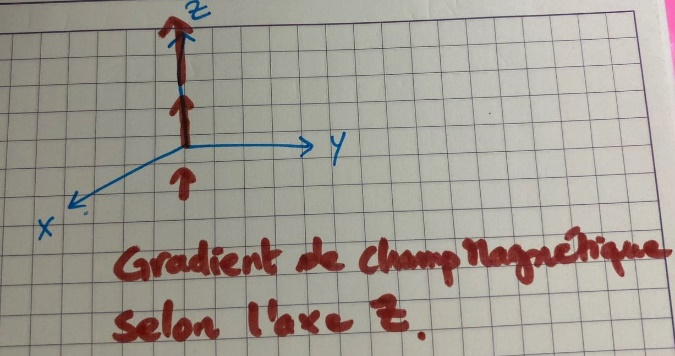 Z
Y
X
Gradient de champ Magnétique
selon l'axe Z.